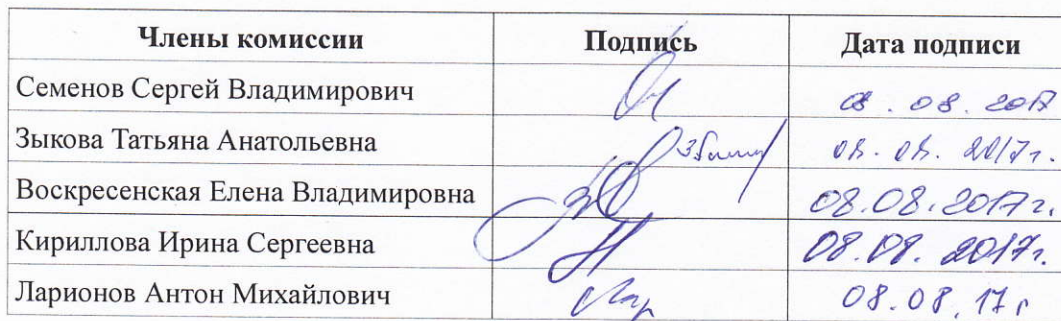 Члены комиссии Подпись Дата подписи
Семенов Сергей Владимирович 08.08.2017
Зыкова Татьяна Анатольевна 08.08.2017г.
Воскресенская Елена Владимировна 08.08.2017г.
Кириллова Ирина Сергеевна 08.08.2017г.
Ларионов Антон Михайлович 08.08.17г